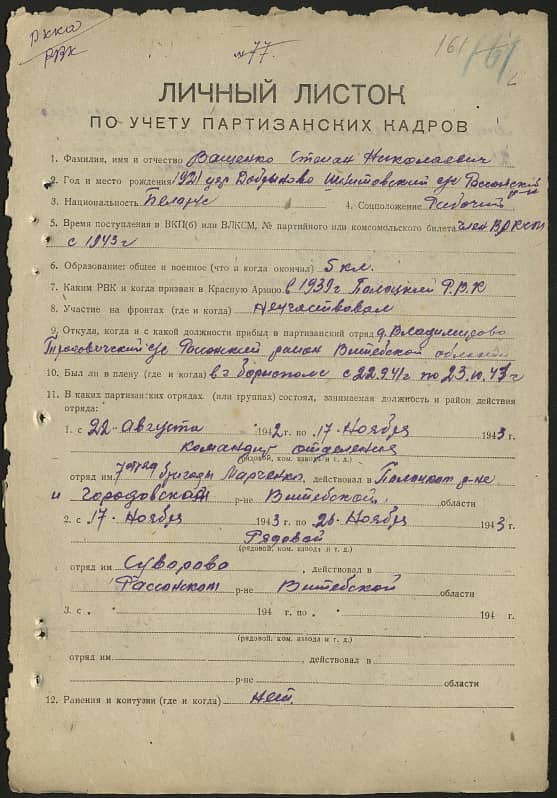 РККА
РВК
№ 77.
161
ЛИЧНЫЙ ЛИСТОК
ПО УЧЕТУ ПАРТИЗАНСКИХ КАДРОВ
1. Фамилия, имя и отчество Ващенко Степан Николаевич
2. Год и место рождения 1921 уцр Добрыново с/с Россонский р-н
3. Национальность Беларус 4. Соцположение Рабочий
5. Время поступления в ВКП(б) или ВЛКСМ, № партийного или комсомольского билета член ВЛКСМ
с 1943 г
6. Образование: общее и военное (что и когда окончил) 5 кл.
7. Каким РВК и когда призван в Красную Армию в 1939 г Полоцкий Р.В.К
8. Участие на фронтах (где и когда) Неучаствовал
9. Откуда, когда и с какой должности прибыл в партизанский отряд д. Владимирово
с/с Россонский район Витебской области
10. Был ли в плену (где и когда) в г Борисполе с 22.9.41г по
11. В каких партизанских отрядах (или группах) состоял, занимаемая должность и район действия
отряда:
1. с 22 Августа 1942 г. по 17 Ноября 1943 г.
командир отделения
(рядовой, ком. завода и т. д.)
отряд им. 7 отряд бригады Марченко, действовал в Полоцком р-не
и Городовском р-не Витебской области
2. с 17 Ноября 1943 г. по 26 Ноября 1943 г.
Рядовой
(рядовой, ком. завода и т. д.)
отряд им. Суворова, действовал в
Рассонском р-не Витебской области
3. с " " 194 г. по " " 194 г.
(рядовой, ком. завода и т. д.)
отряд им. , действовал в
р-не области
12. Ранения и контузии (где и когда) нет.